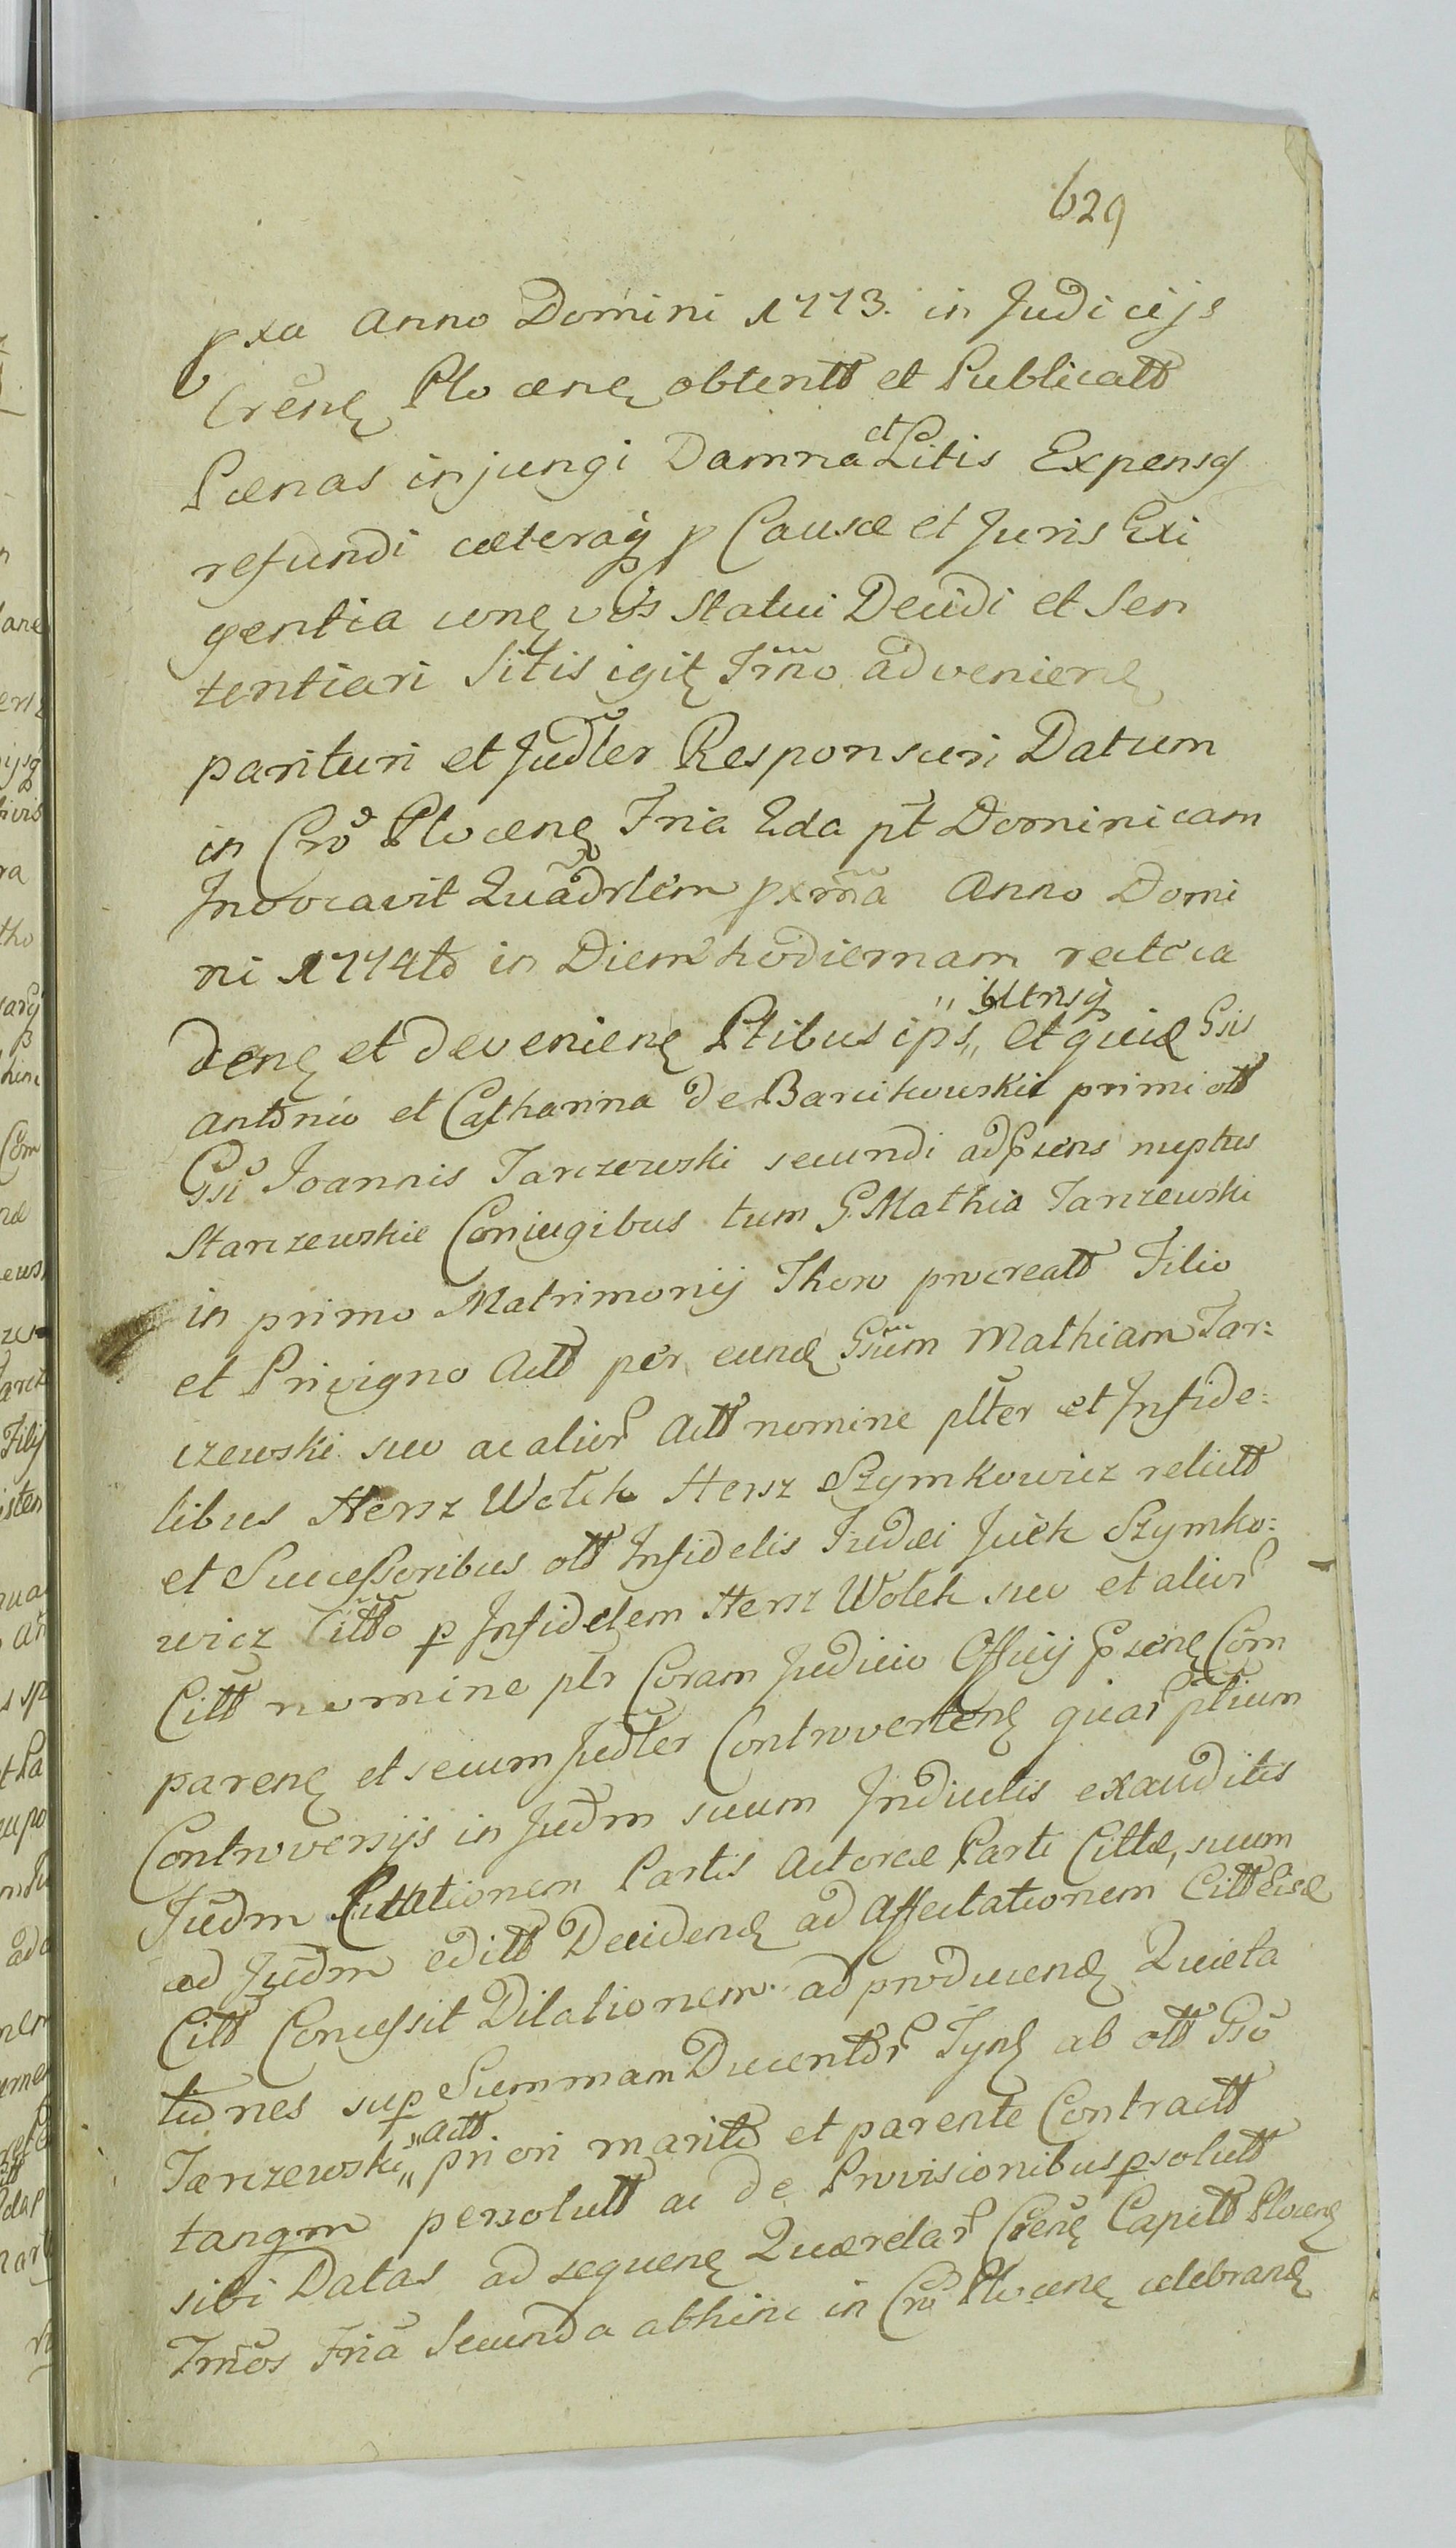 629
pxa Anno Domini 1773. in Judicijs
Crens Plocens obtentt et Publicatt
Pœnas injungi Damna et Litis Expensq
refundi cæteraq p Causæ et Juris Exi
gentia cons vos Statui Decidi et Sen
tentiari Sitis igit Tmno adveniens
parituri et Judler Responsuri Datum
in Cro Plocens Fria 2da pt Dominicam
Invocavit Quadrlem pxma Anno Domi
ni 1774to in Diem hodiernam recte ca
dens et deveniens Ptibus ips,, ,,utrisq et quid Gsis
Antonio et Catharina de Barcikowskie primi ott
Gsi Joannis Tarczewski secundi adpsens nuptus
Starczewskie Conjugibus tum G. Mathia Tarczewski
in primo Matrimonij Thoro procreatt Filio
et Privigno Actt per eund Gsum Mathiam Tar:
czewski suo ac alior Actt nomine plter et Infide:
libus Hersz Wolek Hersz Szymkowicz relictt
et Successoribus ott Infidelis Judæi Juck Szymko:
wicz Citto p Infidelem Hersz Wolek suo et alior
Citt nomine plr Coram Judicio Officij psens Com
parens et secum Judler Controvertens quar ptium
Controversijs in Judm suum Inductis exauditis
Judm Cittationem Partis Actoreæ Parti Cittæ, suum
ad Judm editt Decidend ad Affectationem Citt Eisd
Citt Concessit Dilationem ad producend Quieta
tiones sup Summam Ducentor Tynf ab ott Gso
Tarczewski,, ,,actt priori marito et parente Contractt
tanqm persolutt ac de Provisionibus psolutt
sibi Datas ad sequens Querelar Crens Capitt Plocens
Tmnos Fria Secunda abhinc in Cro Plocens celebrand